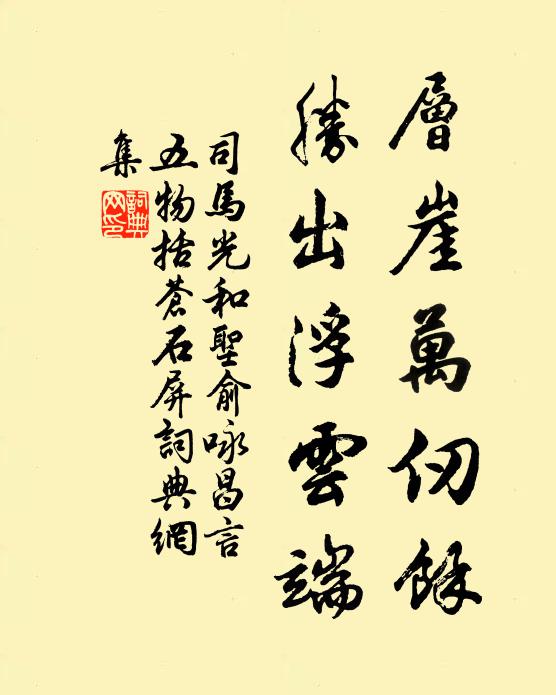 層崖萬仞餘
勝出浮雲端
司馬光和聖俞咏昌言
五物括蒼石屏詞典網
集
詞典網印